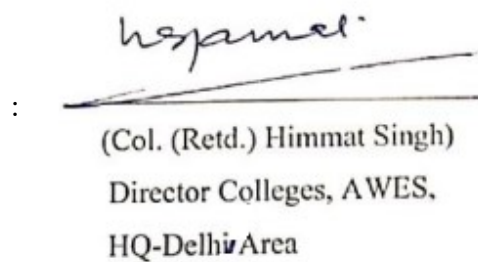 :
(Col. (Retd.) Himmat Singh)
Director Colleges, AWES,
HQ-Delhi Area